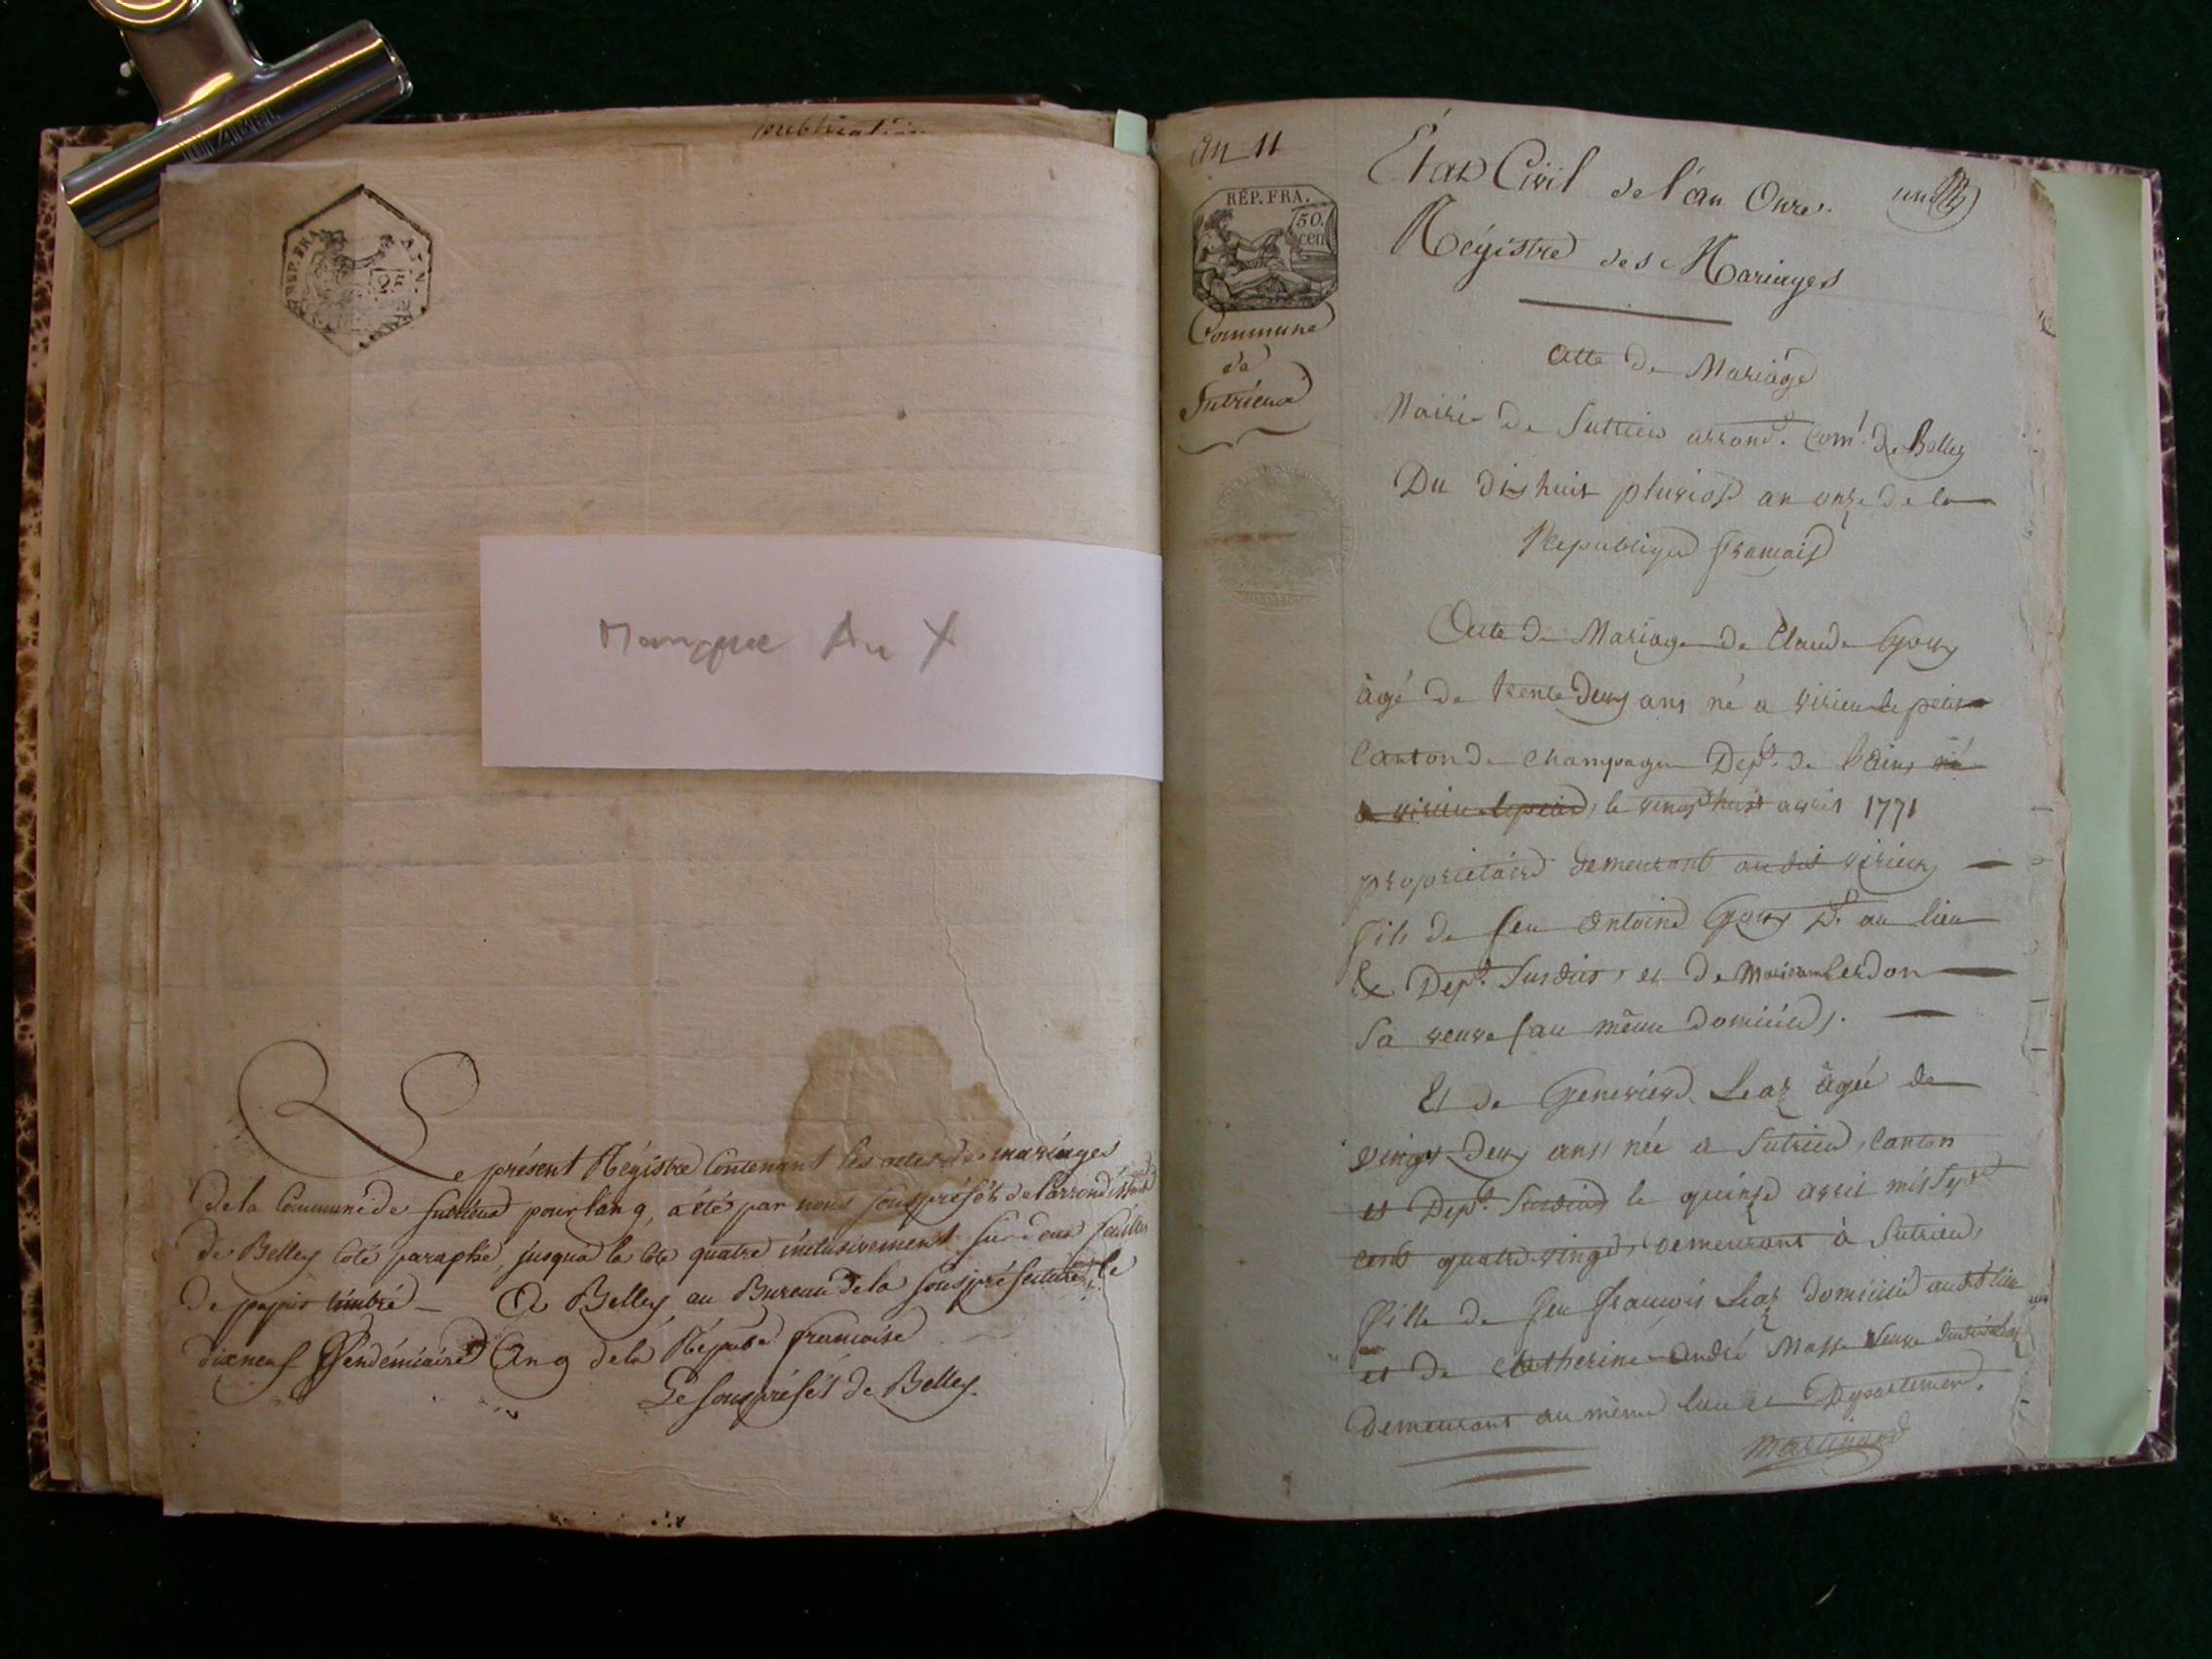 publication
Manque An X
Le présent Régistre Contenant les actes de mariages
de la Commune de Sutrieux pour l'an 9, a été par nous souspréfét de l'arrondissement
de Belley coté paraphé, jusqua la cote quatre inclusivement sur deux feuilles
de papier timbré _ A Belley au Bureau de la souspréfecture le
dixneuf Vendémiaire An 9 de la Répube francaise
Le souspréfét de Belley.
An 11
RÉP. FRA.
50.
cen
Commune
de
Sutrieux
État Civil de l'an Onze.
un
Régistre des Mariages
Acte de Mariage
Mairie de Suttrieu arrond. Com.l de Belley
Du dishuit pluviose an onze de la
Republique francaise
Acte de Mariage de Claude Gouy
âgé de trente deux ans né a virieu le petit
Canton de Champagne Dep.t de l'ain, né
a virieu le petit, le vingt huit avril 1771
propriétaire demeurant au dit virieux
fils de feu antoine Gouy D. au lieu
& Dep.t Susdits, et de Cerdon
Sa veuve (au même Domicile).
Et de Genevieve Leaz âgée de
vingt-deux ans, née a Sutrieu, Canton
et Dep.t Susdits le quinze avril mil Sept
cent quatre-vingt, demeurant à Sutrieu,
fille de feu francois Leaz domicilié audit lieu
et de Catherine andré Masse veuve
demeurant au même lieu et Département.
Martinand